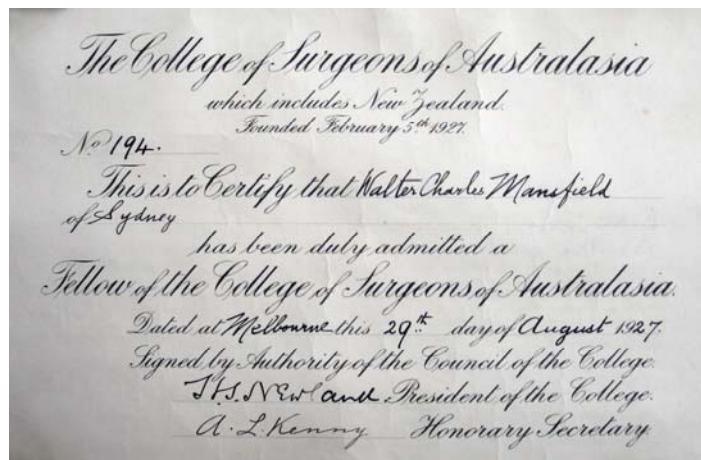 The College of Surgeons of Australasia
which includes New Zealand.
Founded February 5th 1927.
No 194.
This is to Certify that Walter Charles Mansfield
of Sydney
has been duly admitted a
Fellow of the College of Surgeons of Australasia.
Dated at Melbourne this 29th day of August 1927.
Signed by Authority of the Council of the College.
H.S. Newland President of the College.
A. L. Kenny Honorary Secretary.